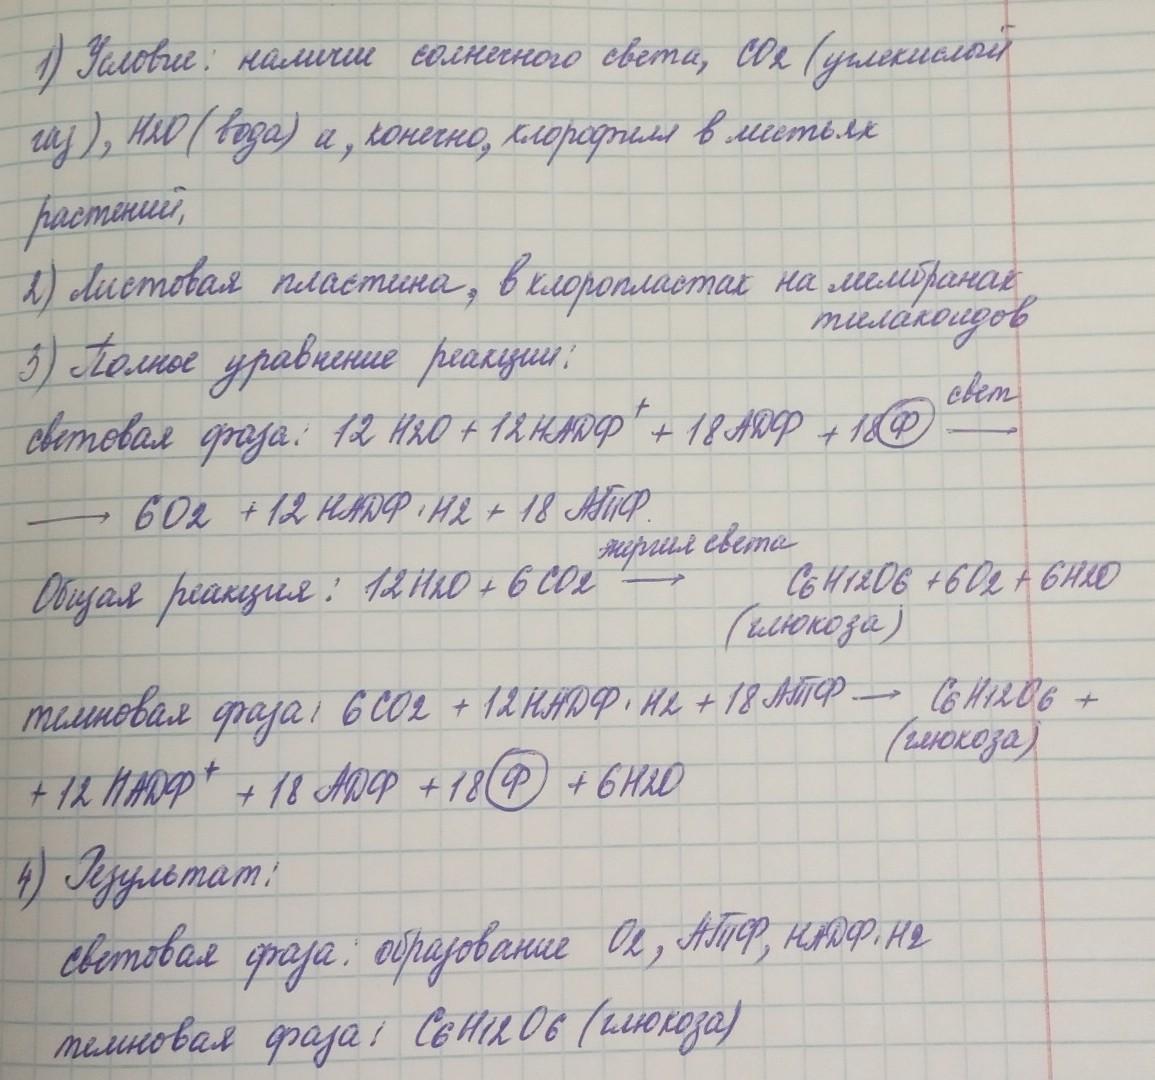 1) Условие: наличие солнечного света, CO2 (углекислый
газ), H2O (вода) и, конечно, хлорофилл в листьях
растений.
2) Листовая пластина, в хлоропластах на мембранах
тилакоидов
3) Полное уравнение реакции:
свет
световая фаза: 12 H2O + 12 НАДФ⁺ + 18 АДФ + 18 Ф ⟶
⟶ 6O2 + 12 НАДФ·H2 + 18 АТФ.
энергия света
Общая реакция: 12 H2O + 6 CO2 ⟶ C6H12O6 + 6O2 + 6H2O
(глюкоза)
темновая фаза: 6 CO2 + 12 НАДФ·H2 + 18 АТФ ⟶ C6H12O6 +
(глюкоза)
+ 12 НАДФ⁺ + 18 АДФ + 18 Ф + 6H2O
4) Результат:
световая фаза: образование O2, АТФ, НАДФ·H2
темновая фаза: C6H12O6 (глюкоза)